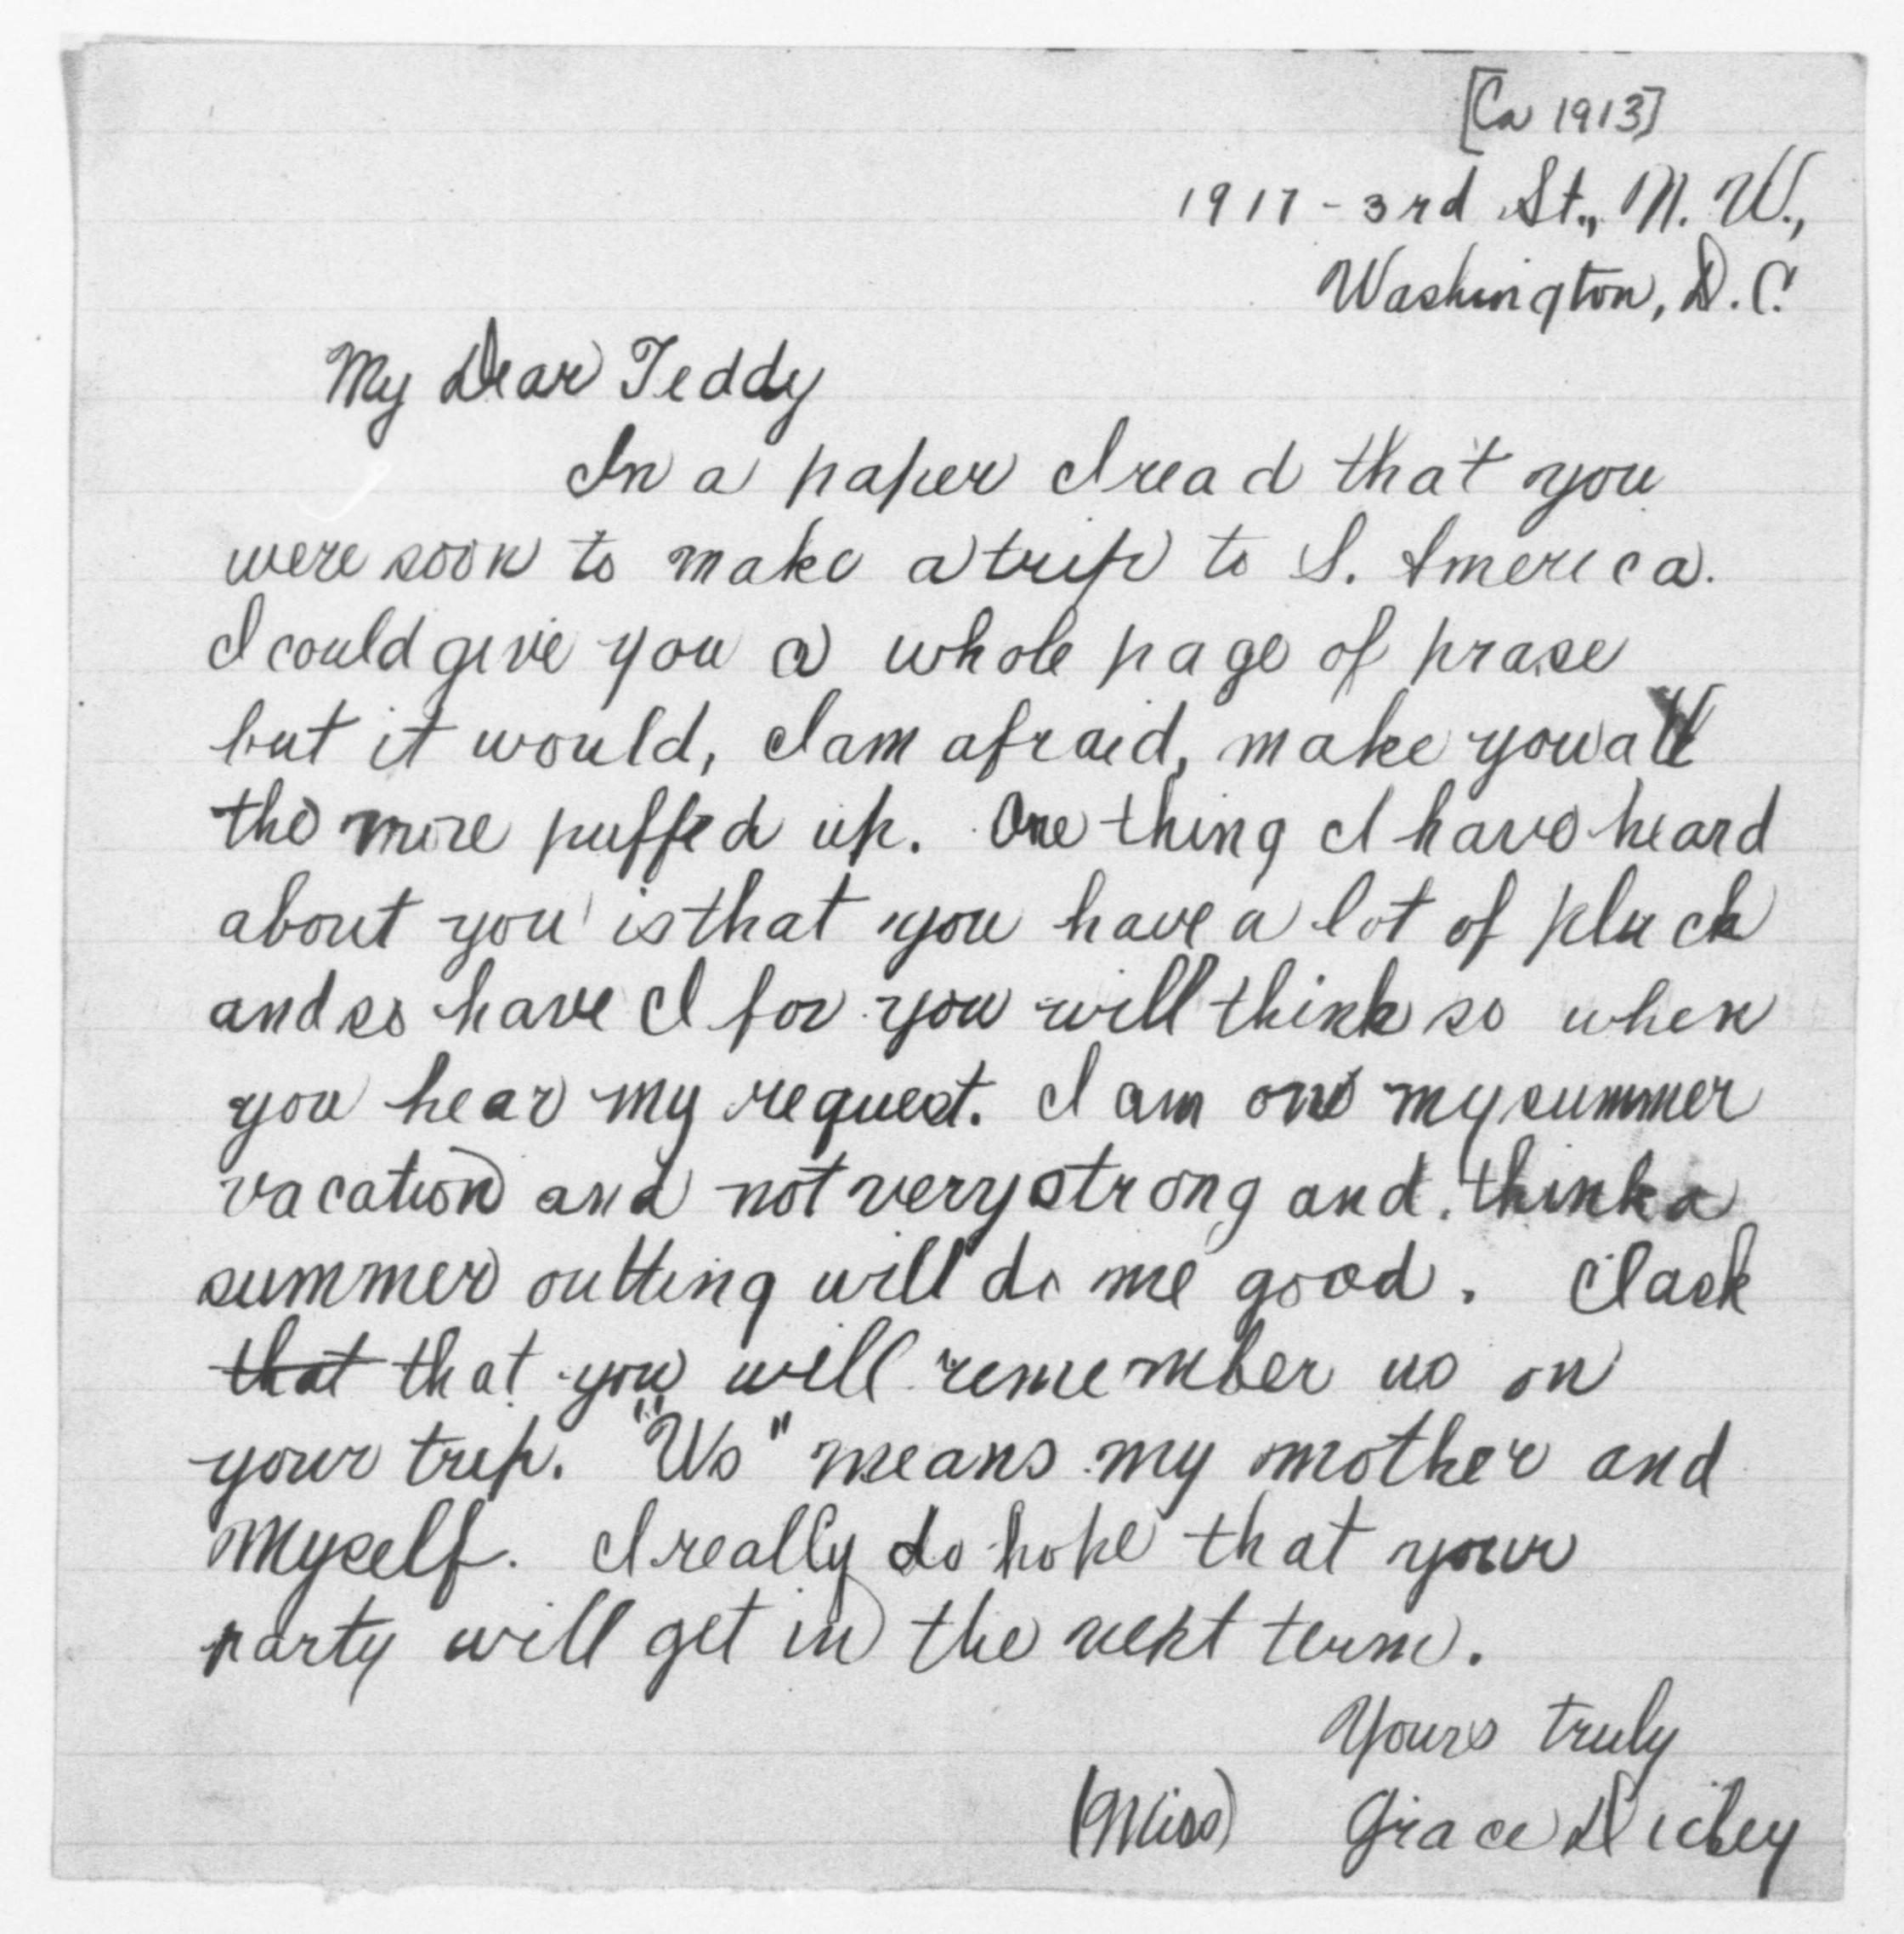 [Ca 1913]
1917 - 3rd St., N. W.,
Washington, D. C.
My Dear Teddy
In a paper I read that you
were soon to make a trip to S. America.
I could give you a whole page of prase
but it would, I am afraid, make you all
the more puffed up. One thing I have heard
about you is that you have a lot of pluck
and so have I for you will think so when
you hear my request. I am on my summer
vacation and not very strong and think a
summer outting will do me good. I ask
that that you will remember us on
your trip. "Us" means my mother and
myself. I really do hope that your
party will get in the next term.
Yours truly
(Miss) Grace